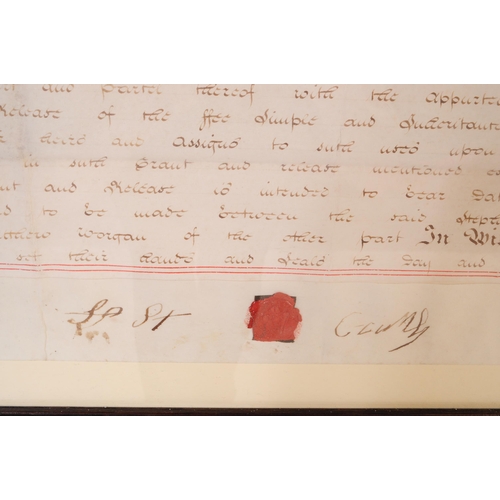 and parcel thereof with the appurte
Release of the ffee Simple and Inheritance
heirs and Assigns to such uses upon
in such Grant and release mentioned
and Release is intended to bear Dat
to be made between the said Step
Morgan of the other part In Wi
set their hands and Seals the Day and